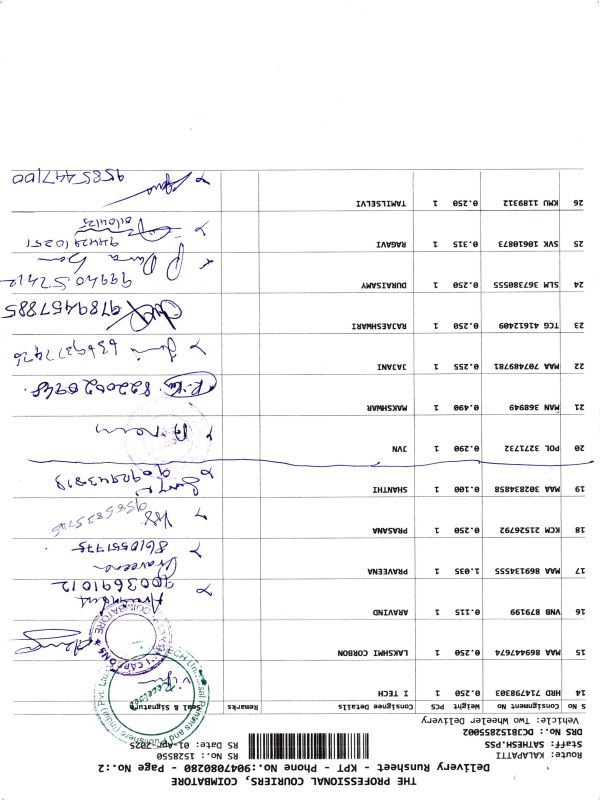 THE PROFESSIONAL COURIERS, COIMBATORE
Delivery Runsheet - KPT - Phone No.:.:9047080280 - Page No.:2
Route: KALAPATTI RS No.: 1528550
Staff: SATHESH.PSS RS Date: 01-Apr-2025
DRS No.: DCJB1285285002
Vehicle: Two Wheeler Delivery
S No Consignment No Weight PCS Consignee Details Remarks Seal & Signature
14 HRD 714770398303 0.250 1 I TECH
15 MAA 469447674 0.250 1 LAKSHMI CORBON
16 VNB 879199 0.115 1 ARAVIND 9003691012
17 MAA 869134555 1.035 1 PRAVEENA Praveena 8610551775
18 KCM 21526792 0.250 1 PRASANA
19 MAA 302834858 0.100 1 SHANTHI
20 POL 3271732 0.290 1 JVN
21 MAN 368949 0.490 1 MAKSHMAR
22 MAA 707489781 0.255 1 JAJANI 6369377426
23 TCG 41612409 0.250 1 RAJAESHARI 9789457885
24 SLM 367380555 0.250 1 DURAISAMY
25 SVK 10610873 0.315 1 RAGAVI 9442910251
01/04/25
26 KMU 1189312 0.250 1 TAMILSELVI 9585447100